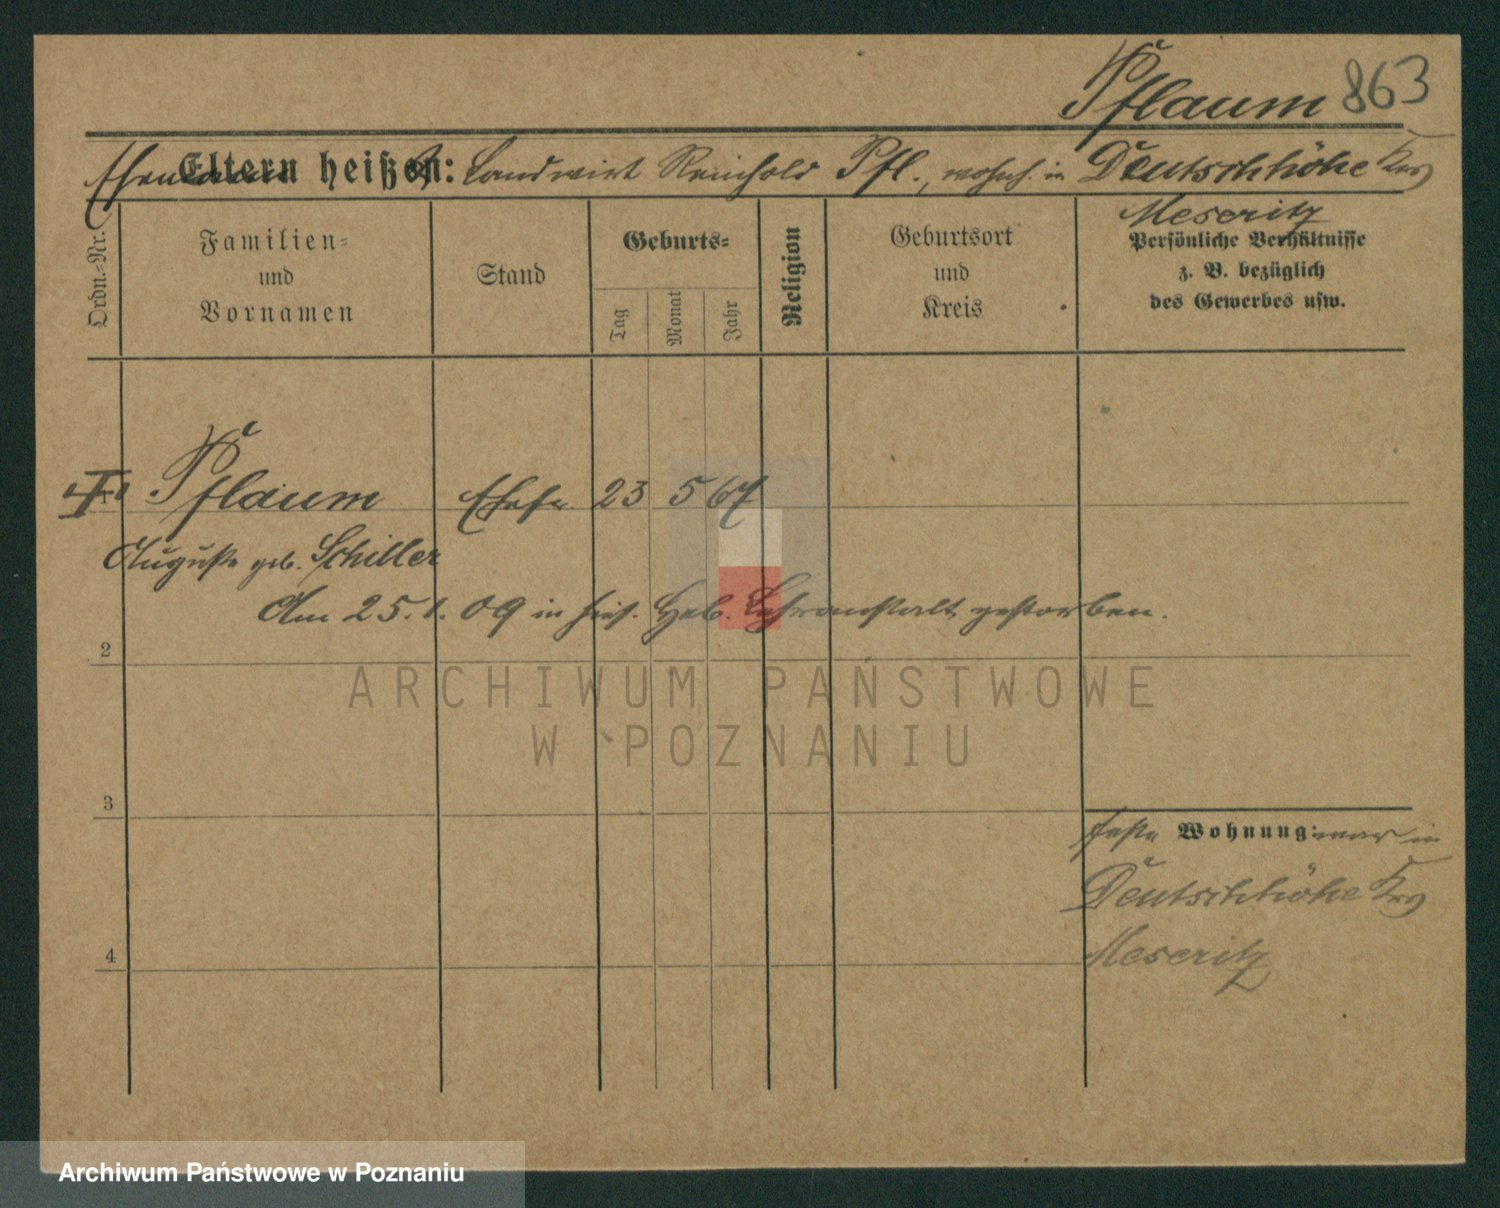 Pflaum 863
Eltern heißen: Landwirt Reinhold Pfl., wohnh. in Deutschhöhe Krs
Meseritz
Ordn.-Nr.
Familien-
und
Vornamen
Stand
Geburts-
Tag
Monat
Jahr
Religion
Geburtsort
und
Kreis
Persönliche Verhältnisse
z. B. bezüglich
des Gewerbes usw.
I Pflaum Ehefr. 23 5 67
Auguste geb. Schiller
Am 25.1.09 in hies. Heb. Lehranstalt gestorben.
2
ARCHIWUM PAŃSTWOWE
W POZNANIU
3
feste Wohnung: war in
Deutschhöhe Krs
Meseritz
4
Archiwum Państwowe w Poznaniu